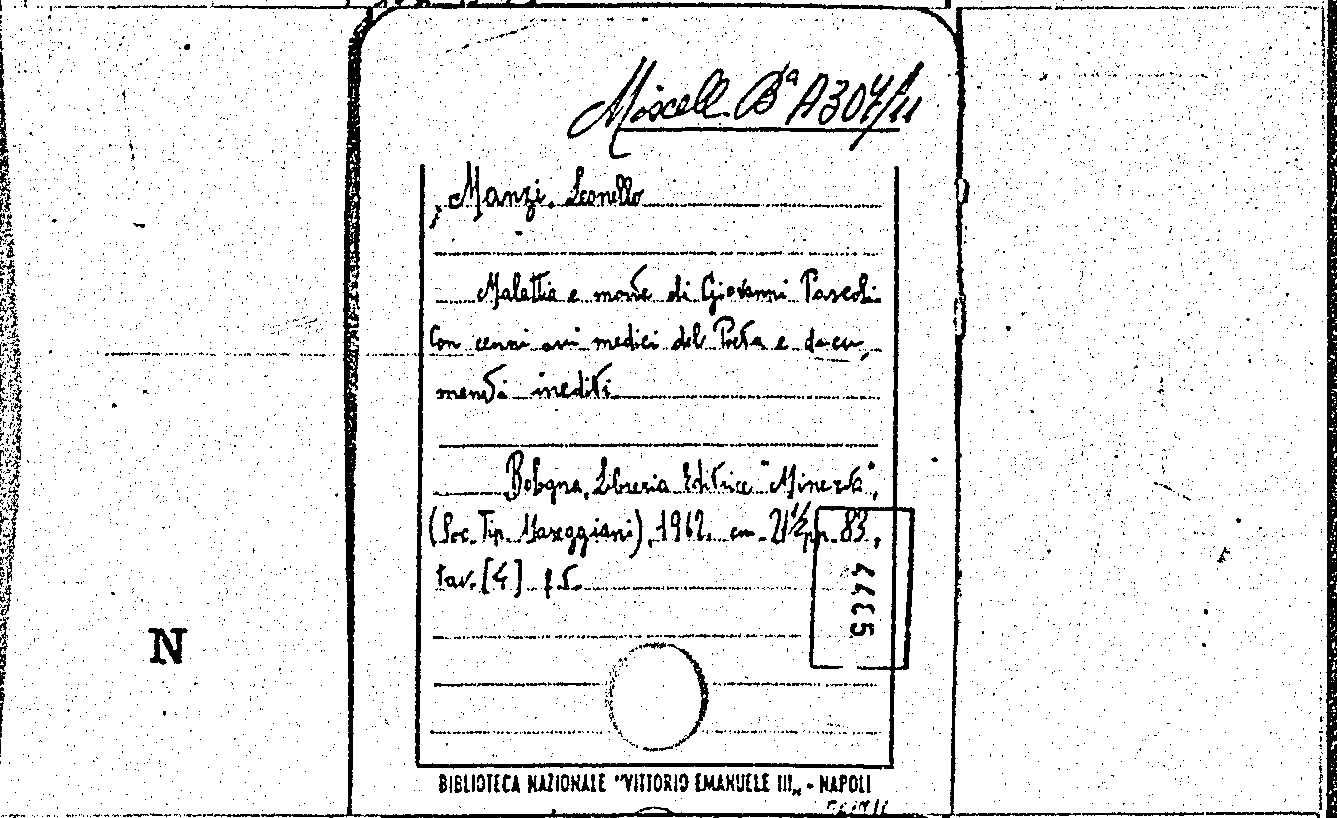 Miscell. Bª A 307/11
Manzi, Leonello
Malattia e morte di Giovanni Pascoli
Con cenni sui medici del Poeta e docu,
menti inediti.
Bologna, Libreria Editrice "Minerva",
(Soc. Tip. Mareggiani), 1962. cm. 21½ pp. 83,
tav. [4] f.t.
4435
N
BIBLIOTECA NAZIONALE "VITTORIO EMANUELE III„ - NAPOLI